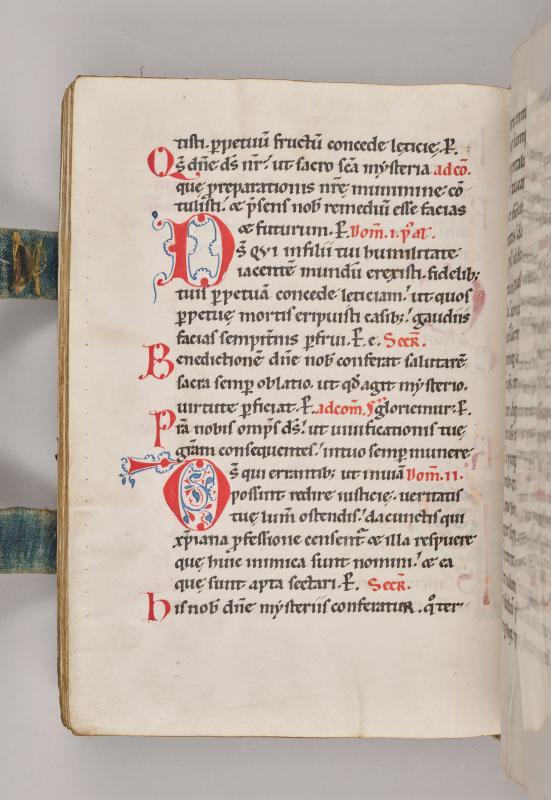 tisti. ꝑpetuū fructū concede lęticię. P̱.
Qs̄ dn̄e ds̄ nr̄. ut sacro sc̄a mysteria ad cō.
quę p̄parationis nr̄ę munimine cō
tulisti. & p̄sens nob̄ remediū esse facias
& futurum. P̱. Dom̄. i. p⁹ al̄.
Ds̄ qui in filii tui humilitate
iacentē mundū erexisti. fidelib;
tuis ꝑpetuā concede leticiam. ut quos
ꝑpetuę mortis eripuisti casib; gaudiis
facias sempit̄nis ꝑfrui. P̱. e. Secr̄.
Benedictionē dn̄e nob̄ conferat salutarē
sacra semꝑ oblatio. ut qd̄ agit mysterio.
uirtute ꝑficiat. P̱. ad com̄. gloriemur. P̱.
Pr̄a nobis omp̄s ds̄. ut uiuificationis tuę
gr̄am consequentes. in tuo semꝑ munere
Ds̄ qui errantib; ut in uiā Dom̄. ii.
possint redire iusticię. ueritatis
tuę lum̄ ostendis. da cunctis qui
xp̄iana ꝓfessione censent᷑ & illa respuere
que huic inimica sunt nomini. & ea
quę sunt apta sectari. P̱. Secr̄.
His nob̄ dn̄e mysteriis conferatur. q̊ ter-